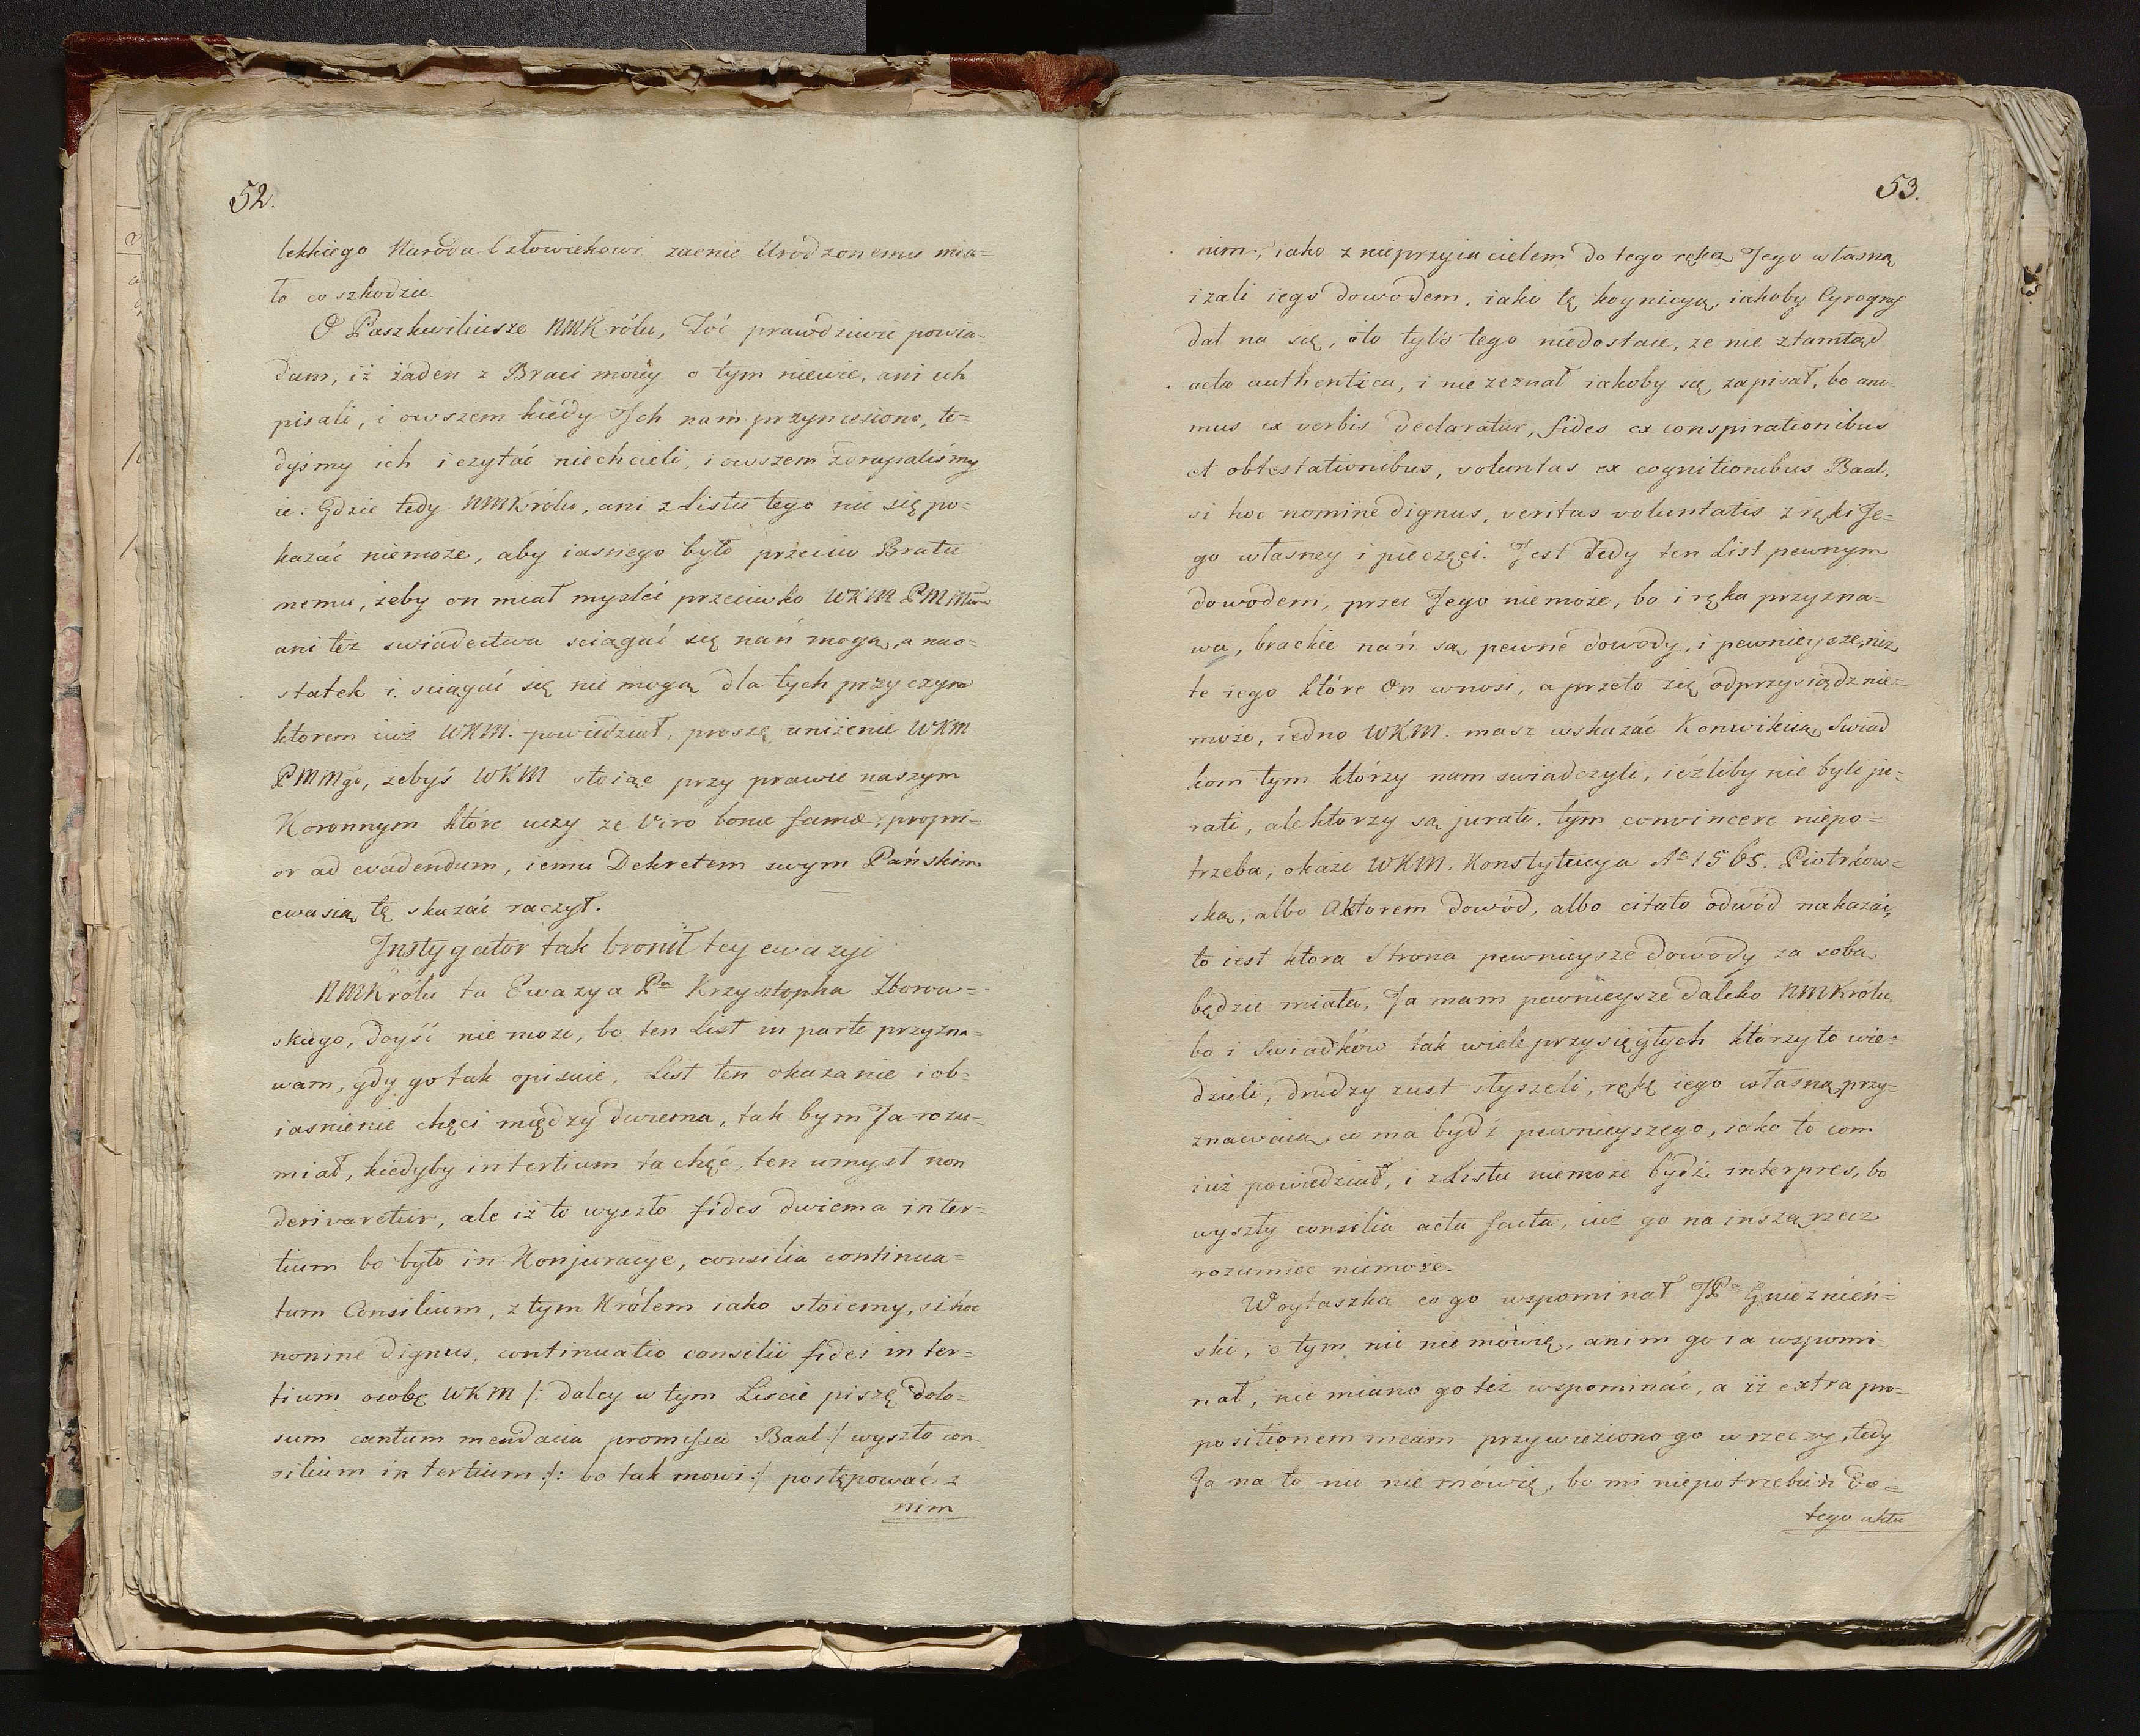 52.
lekkiego Narodu Człowiekowi zacnie Urodzonemu mia=
ło co szkodzić.
O Paszkwiliusze NMKrólu, Toć prawdziwie powia=
dam, iż żaden z Braci moiey o tym niewie, ani ich
pisali, i owszem kiédy Ich nam przyniesiono, te=
dyśmy ich i czytać niechcieli, i owszem zdrapaliśmy
ie: Gdzie tedy NMKrólu, ani z Listu tego nic się po=
kazać niemoże, aby iasnego było przeciw Bratu
memu, żeby on miał mysleć przeciwko WKM PMM
ani też swiadectwa sciągać się nań mogą, a nao=
statek i sciągać się nie mogą dla tych przyczyn
którem iuż WKM. powiedział, proszę uniżenie WKM
PMMgo, żebyś WKM stoiąc przy prawie naszym
Koronnym które uczy ze Viro bonæ famæ, propri=
or ad evadendum, iemu Dekretem swym Pańskim
ewasią tę skazać raczył.
Instygator tak bronił tey ewazyi
NMKrólu ta Ewazya Pa Krzysztopha Zborow=
skiego, doyść nie może, bo ten List in parte przyzna=
wam, gdy go tak opisuie, List ten okazanie i ob=
iasnienie chęci między dwiema, tak bym Ja rozu=
miał, kiedyby in tertium ta chęć, ten umysł non
derivaretur, ale iż to wyszło fides dwiema in ter=
tium bo było in Konjuracye, consilia continua=
tum Consilium, z tym Królem iako stoiemy, si hoc
nomine dignus, continuatio consilii fidei in ter=
tium osobę WKM /: daley w tym Liscie piszę dolo=
sum cantum mendacia promissa Baal :/ wyszło con
silium in tertium :/: bo tak mowi :/ postępować z
nim
53.
nim, iako z nieprzyiacielem do tego ręka Jego własna
izali iego dowodem, iako tę kognicyą, iakoby Cyrogra
dał na się, oto tylo tego niedostaie, że nie ztamtąd
acta authentica, i nie zeznał iakoby się zapisał, bo ani
mus ex verbis declaratur, fides ex conspirationibus
et obtestationibus, voluntas ex cognitionibus Baal,
si hoc nomine dignus, veritas voluntatis z ręki Je=
go własney i pieczęci. Jest tedy ten List pewnym
dowodem, przeć Jego niemoże, bo i ręka przyzna=
wa, brackie nań są pewne dowody, i pewnieysze, niż
te iego które On wnosi, a przeto się odprzysiądz nie=
może, iedno WKM. masz wskazać Konwikcią, Swiad
kom tym którzy nam swiadczyli, ieźliby nie byli ju=
rati, ale ktorzy są jurati, tym convincere niepo=
trzeba; okaże WKM. Konstytucya Aº 1565. Piotrkow=
ska, albo Aktorem dowód, albo citato odwód nakazać,
to iest ktora Strona pewnieysze dowody za sobą
będzie miała, Ja mam pewnieysze daleko NMKrólu
bo i Swiadków tak wiele przysięgłych którzy to wie=
dzieli, drudzy z ust słyszeli, rękę iego własną przy=
znawaią, co ma bydź pewnieyszego, iako to com
iuż powiedział, i z Listu niemoże bydź interpres, bo
wyszły consilia acta facta, iuż go na inszą rzecz
rozumieć niemoże.
Woytaszka co go wspominał JPa Gnieznień=
ski, o tym nic nie mówię, anim go ia wspomi
nał, nie miano go też wspominać, a iż extra pro=
positionem meam przywieziono go w rzeczy, tedy
Ja na to nic nie mówię, bo mi niepotrzebien do=
tego aktu